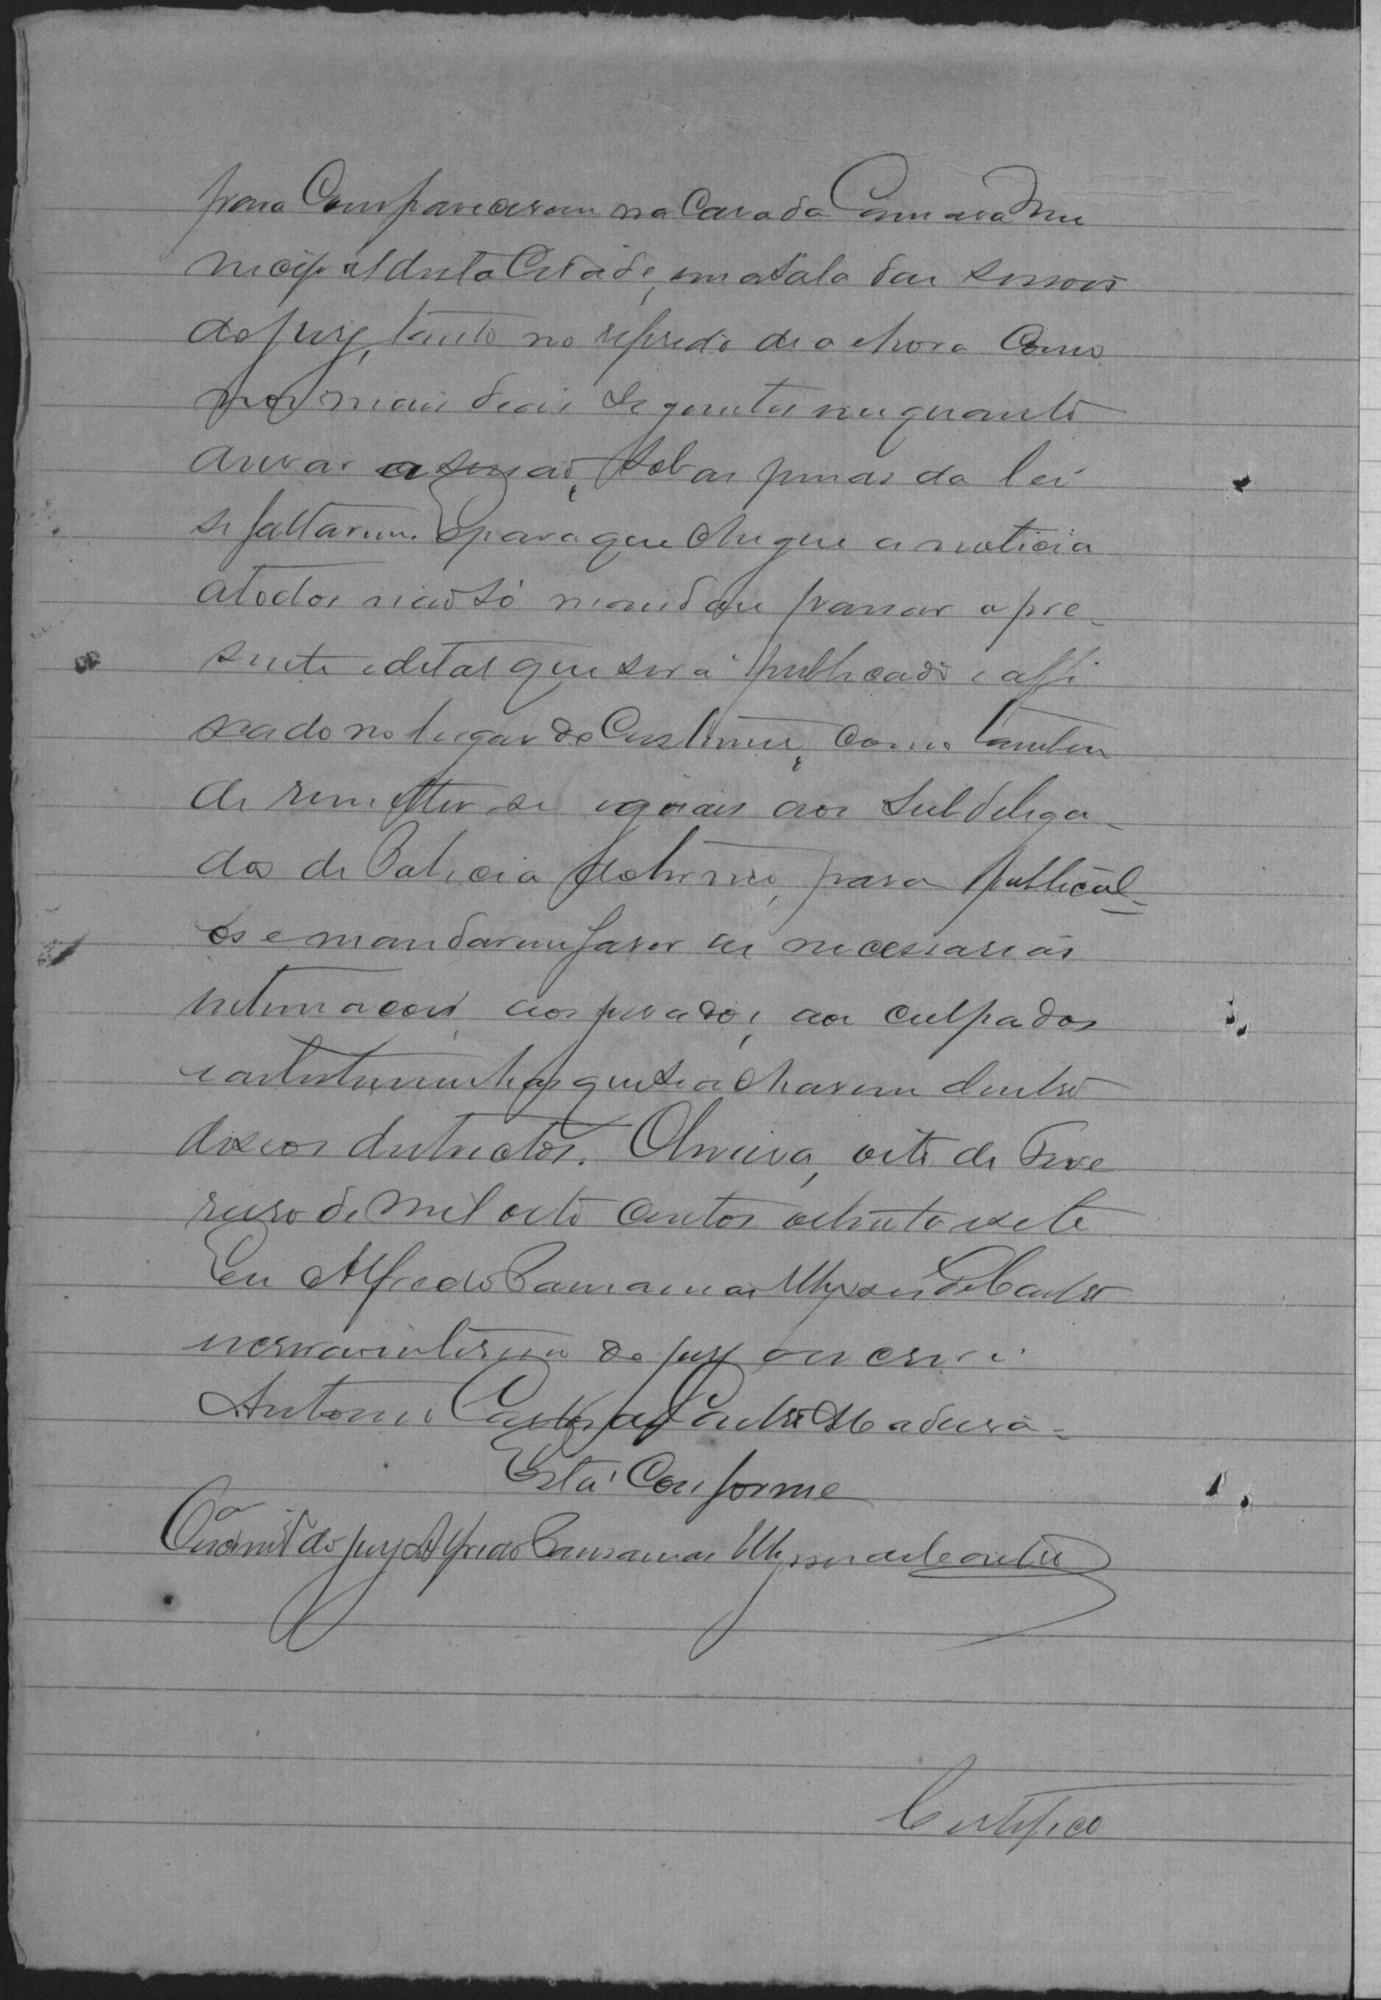 para Comparecerem na Casa da Camara Mu
necipal desta Cidade, em a Sala das sessois
do jury, tanto no referido dia e hora Como
nos mais dias seguintes emquanto
durar a sessaõ, sob as penas da lei
se faltarem. E para que chegue a noticia
a todos naõ só mandou passar o pre-
sente edital que será publicado e affi
xado no lugar do Custume, como tambem
de remetter-se iguais aos Subdelega-
dos de Policia do termo, para publical-
os e mandarem faser as necessarias
intimacois aos jurados, aos culpados
e as testemunhas que se acharem dentro
de seos destrictos. Oliveira, oito de Feve
reiro de mil oito centos oitenta e sete
Eu Alfredo Paraamas Ulysses de Castro
escrivaõ interino do jury o escrevi.
Antonio Carlos de Castro Madeira-
Está Conforme
Escram int do jury Alfredo Ulysses de Castro
Certifico